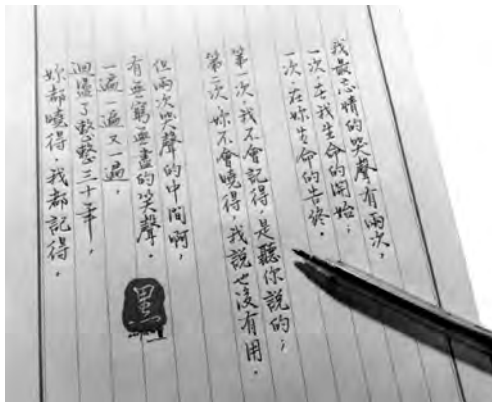 我最忘情的哭聲有兩次，
一次，在我生命的開始，
一次，在妳生命的告終，
第一次，我不會記得，是聽你說的；
第二次，妳不會曉得，我說也沒有用，
但兩次哭聲的中間啊，
有無窮無盡的笑聲，
一遍一遍又一遍，
迴盪了整整三十年，
妳都曉得，我都記得，
黑